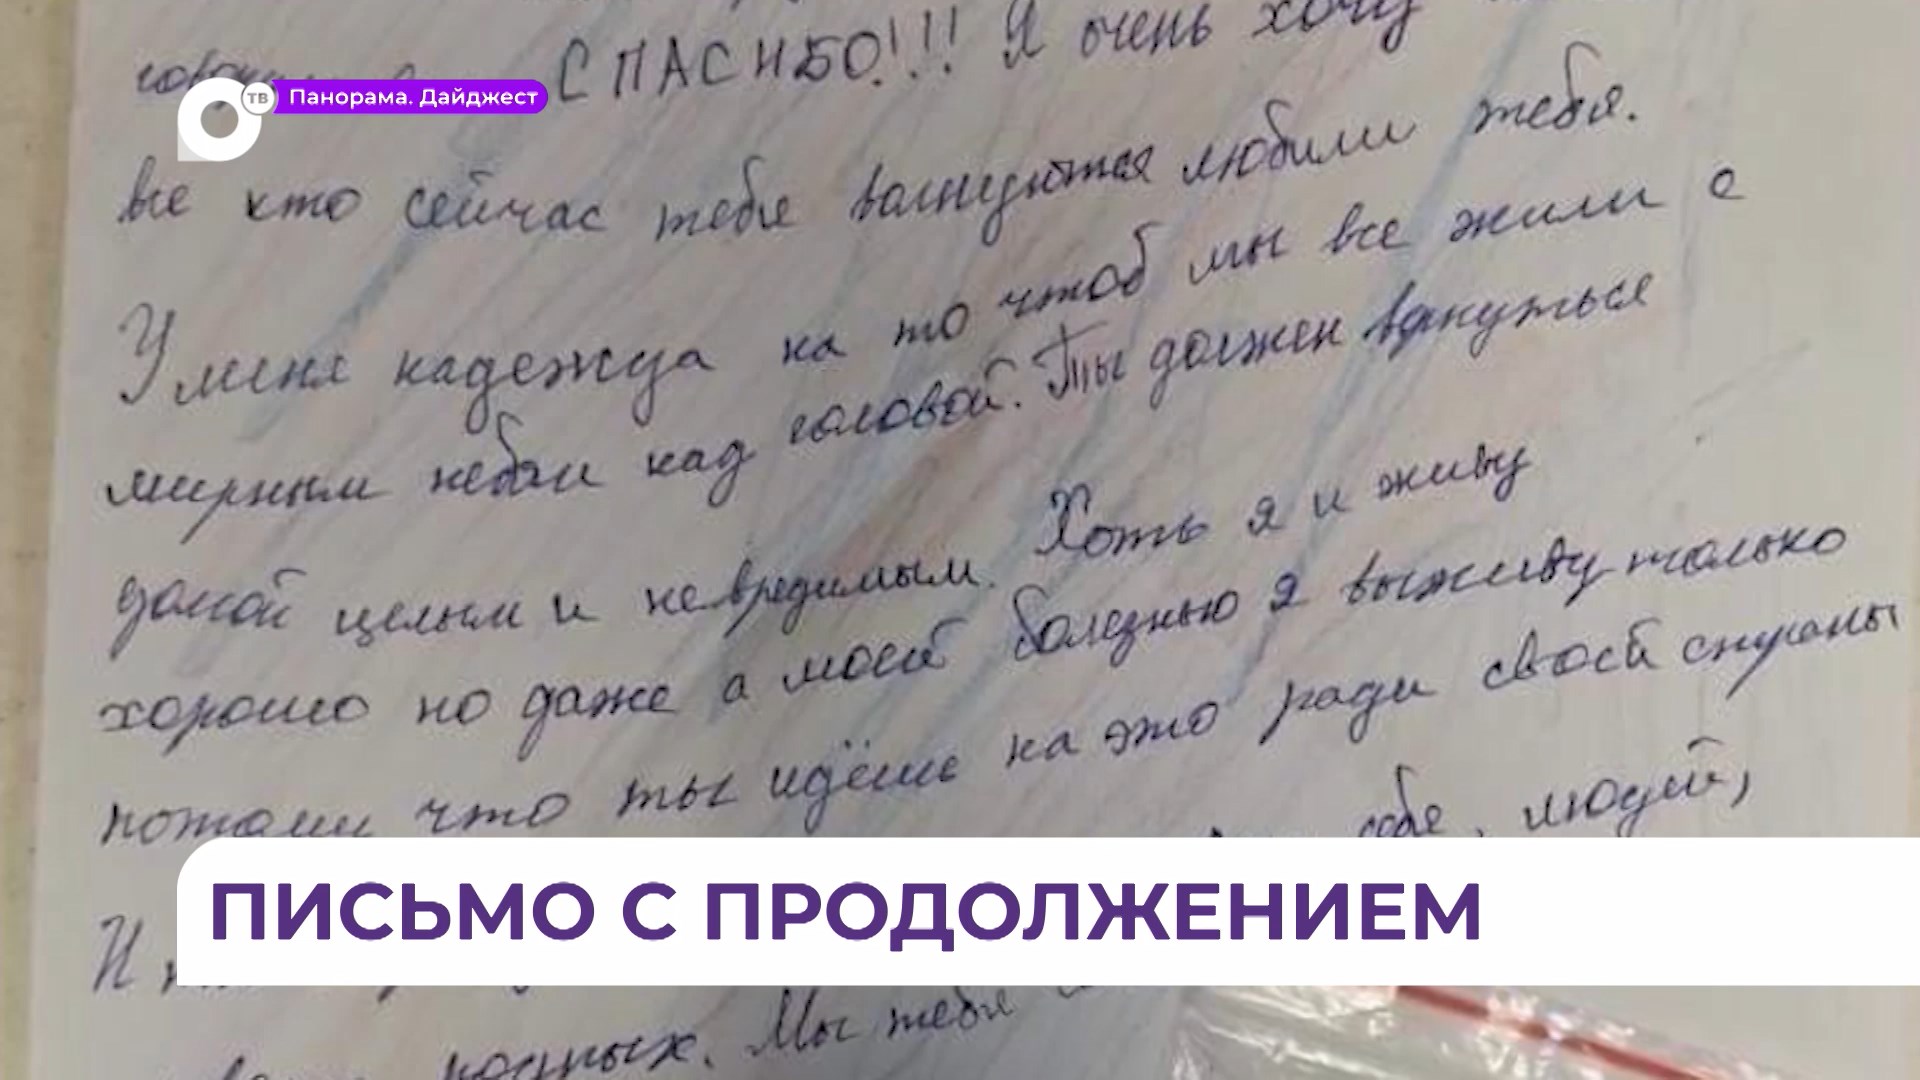 СПАСИБО!!! Я очень хочу
ТВ Панорама. Дайджест
все кто сейчас тебя волнуются любили тебя.
У меня надежда на то чтоб мы все жили с
мирным небом над головой. Ты должен вернуться
домой целым и невредимым. Хоть я и живу
хорошо но даже а моей болезнью я выживу только
потому что ты идёшь на это ради своей страны
себя, людей,
ПИСЬМО С ПРОДОЛЖЕНИЕМ
И
Мы тебя